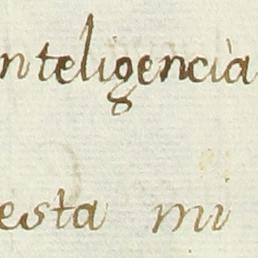 nteligencia
esta mi